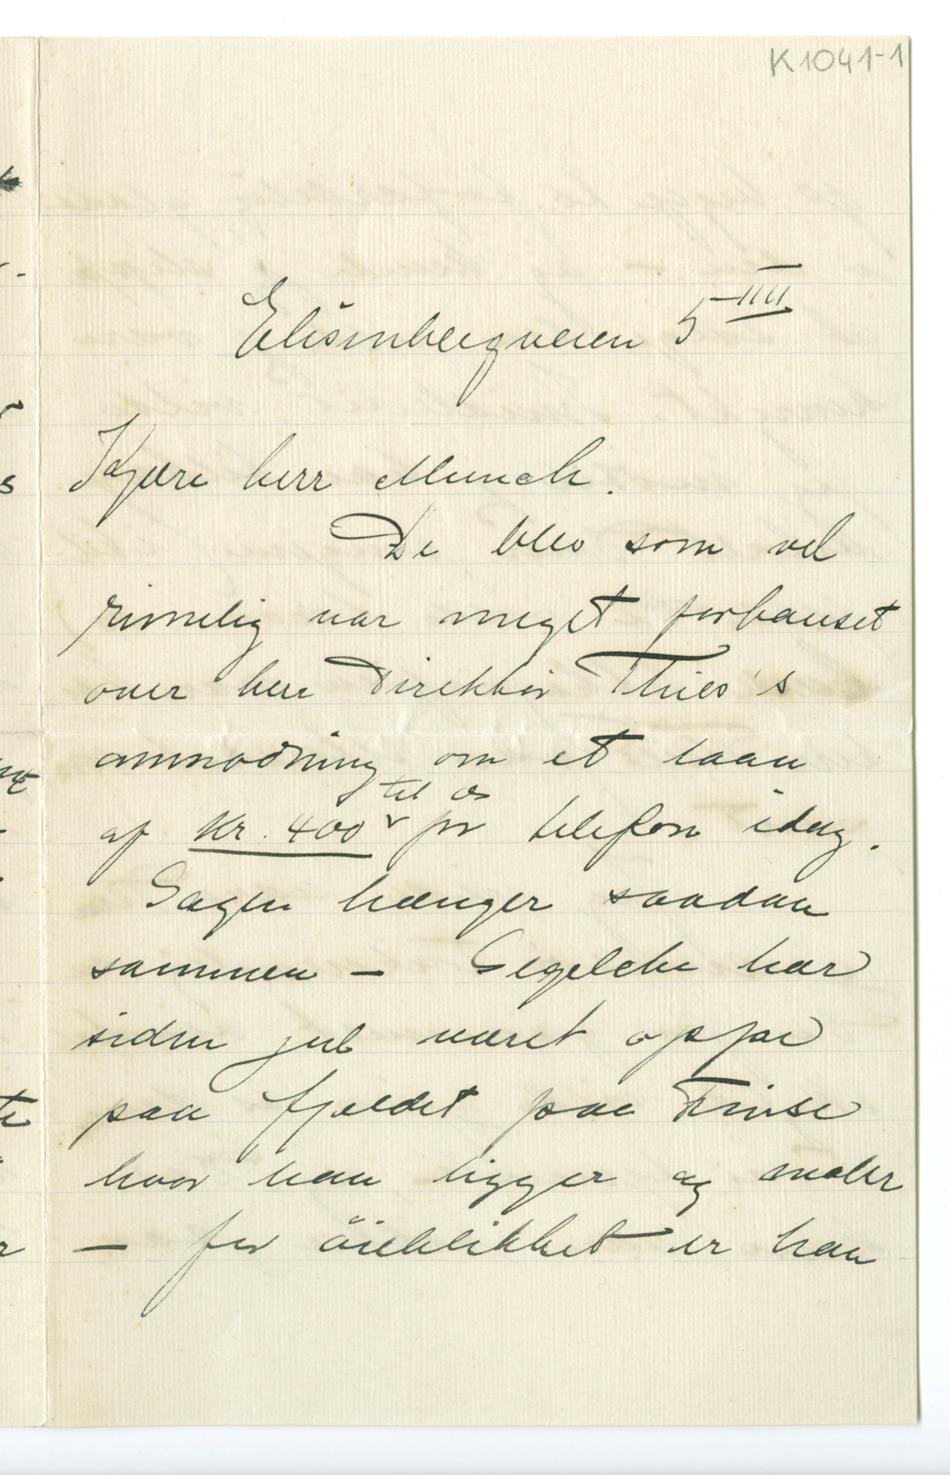 K1041-1
Elisenbergveien 5 IIII
Kjære herr Munch.
De blev som vel
rimelig var meget forbauset
over herr Direktør Thiis's
anmodning om et laan
til os
af Kr. 400 pr telefon idag.
Sagen hænger saadan
sammen – har
siden jul været oppe
paa fjeldet paa Finse
hvor han ligger og maler
– for öieblikket er han